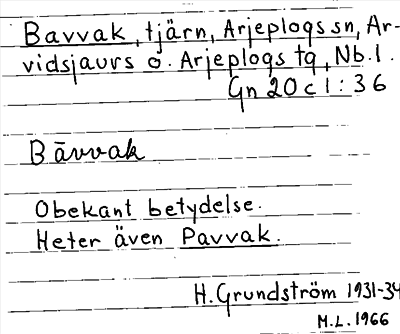 Bavvak, tjärn, Arjeplogs sn, Ar-
vidsjaurs o. Arjeplogs tg, Nb. l.
Gn 20 c 1 : 36
Bāvvak
Obekant betydelse.
Heter även Pavvak.
H. Grundström 1931-34
M.L. 1966